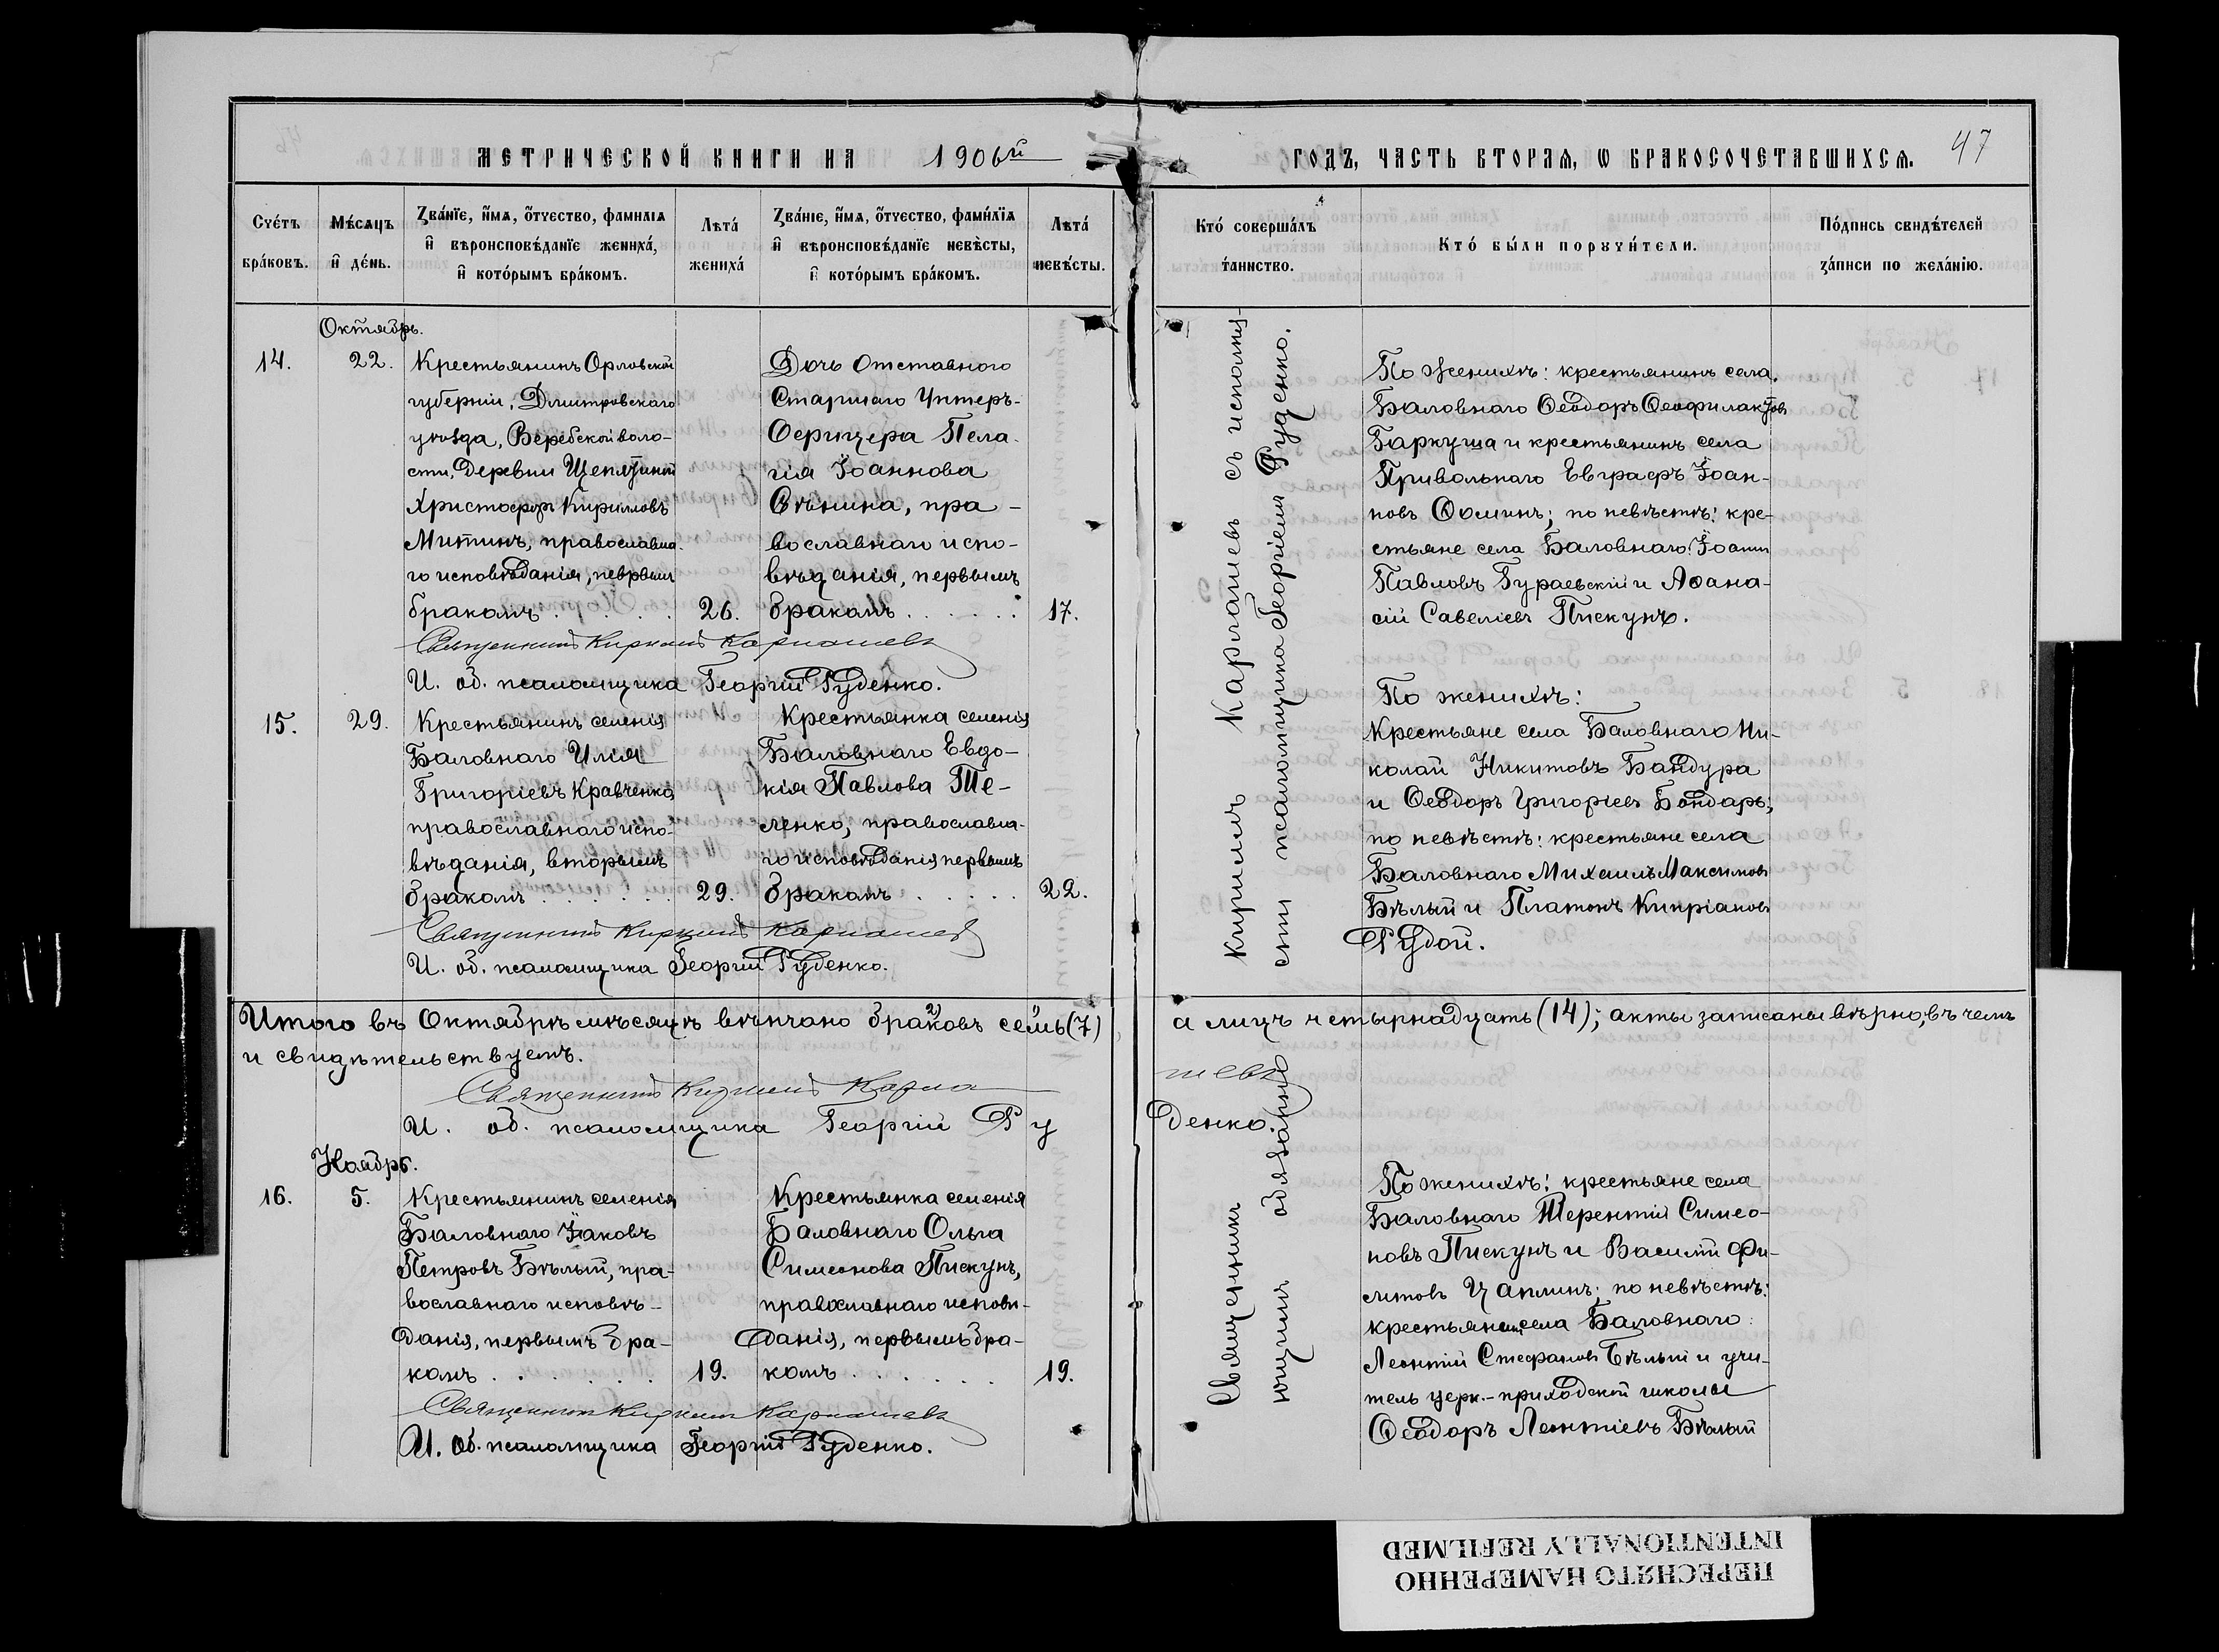 МЕТРИЧЕСКОЙ КНИГИ НА 1906й ГОДЪ, ЧАСТЬ ВТОРАѦ, Ѡ БРАКОСОЧЕТАВШИХСѦ. 47
Счетъ браковъ.
Мѣсяцъ и день.
Званіе, имя, отчество, фамилія
и вѣроисповѣданіе жениха,
и которымъ бракомъ.
Лѣта
жениха
Званіе, имя, отчество, фамилія
и вѣроисповѣданіе невѣсты,
и которымъ бракомъ.
Лѣта
невѣсты.
Кто совершалъ
таинство.
Кто были поручители.
Подпись свидѣтелей
записи по желанію.
Октябрь.
14. 22.
Крестьянинъ Орловской
губерніи, Дмитровскаго
уѣзда, Веребской воло-
сти, деревни
Христофоръ Кириловъ
Митинъ, православна-
го исповѣданія, первымъ
бракомъ 26.
Дочь отставного
Старшаго Унтеръ-
Офицера Пела-
гія Іоаннова
Сѣнина, пра-
вославнаго испо-
вѣданія, первымъ
бракомъ 17.
Священникъ Кирилъ Карпашевъ
И. об. псаломщика Георгій Руденко.
По женихѣ: крестьянинъ села
Баловнаго Ѳеодоръ Ѳеофилактовъ
Гаркуша и крестьянинъ села
Привольнаго Евграфъ Іоан-
новъ Ѳоминъ; по невѣстѣ: кре-
стьяне села Баловнаго: Іоаннъ
Павловъ Гураевскій и Аѳана-
сій Савеліевъ Пискунъ.
15. 29.
Крестьянинъ селенія
Баловнаго Илія
Григоріевъ Кравченко,
православнаго испо-
вѣданія, вторымъ
бракомъ 29.
Крестьянка селенія
Баловнаго Евдо-
кія Павлова Те-
ленко, православна-
го исповѣданія первымъ
бракомъ 22.
Священникъ Кирилъ Карпашевъ
И. об. псаломщика Георгій Руденко.
По женихѣ:
Крестьяне села Баловнаго Ни-
колай Никитовъ Бандура
и Ѳеодоръ Григоріевъ Бондарь;
по невѣстѣ: крестьяне села
Баловнаго Михаилъ Максимовъ
Бѣлый и Платонъ Кипріановъ
Рудой.
Итого въ Октябрѣ мѣсяцѣ вѣнчано браковъ семь (7) а лицъ четырнадцать (14); акты записаны вѣрно, въ чемъ
и свидѣтельствуемъ.
Священникъ Кирилъ Карпашевъ
И. об. псаломщика Георгій Руденко.
Ноябрь.
16. 5.
Крестьянинъ селенія
Баловнаго Іаковъ
Петровъ Бѣлый, пра-
вославнаго исповѣ-
данія, первымъ бра-
комъ 19.
Крестьянка селенія
Баловнаго Ольга
Симеонова Пискунъ,
православнаго исповѣ-
данія, первымъ бра-
комъ 19.
Священникъ Кирилъ Карпашевъ
И. об. псаломщика Георгій Руденко.
По женихѣ: крестьяне села
Баловнаго Терентій Симео-
новъ Пискунъ и Василій Фи-
липовъ Цаплинъ; по невѣстѣ:
крестьянинъ села Баловнаго:
Леонтій Стефановъ Бѣлый и учи-
тель церк.-приходской школы
Ѳеодоръ Леонтіевъ Бѣлый
Священникъ Кирилъ Карпашевъ съ исполня-
ющимъ обязанности псаломщика Георгіемъ Руденко.
ПЕРЕСНЯТО НАМЕРЕННО
INTENTIONALLY REFILMED